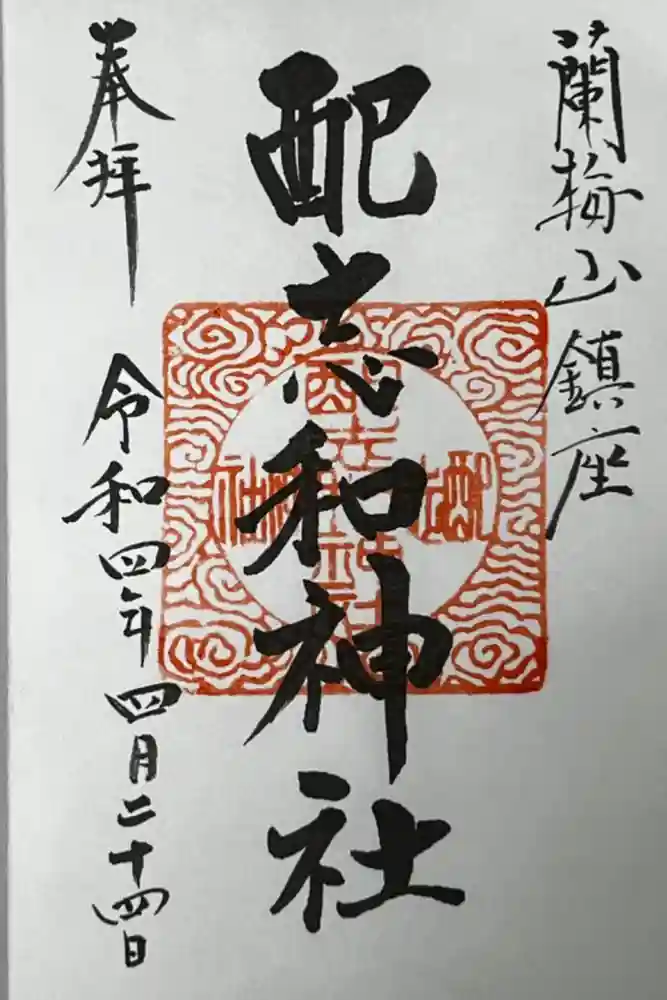 蘭梅山鎮座
配志和神社
奉拝
令和四年四月二十四日